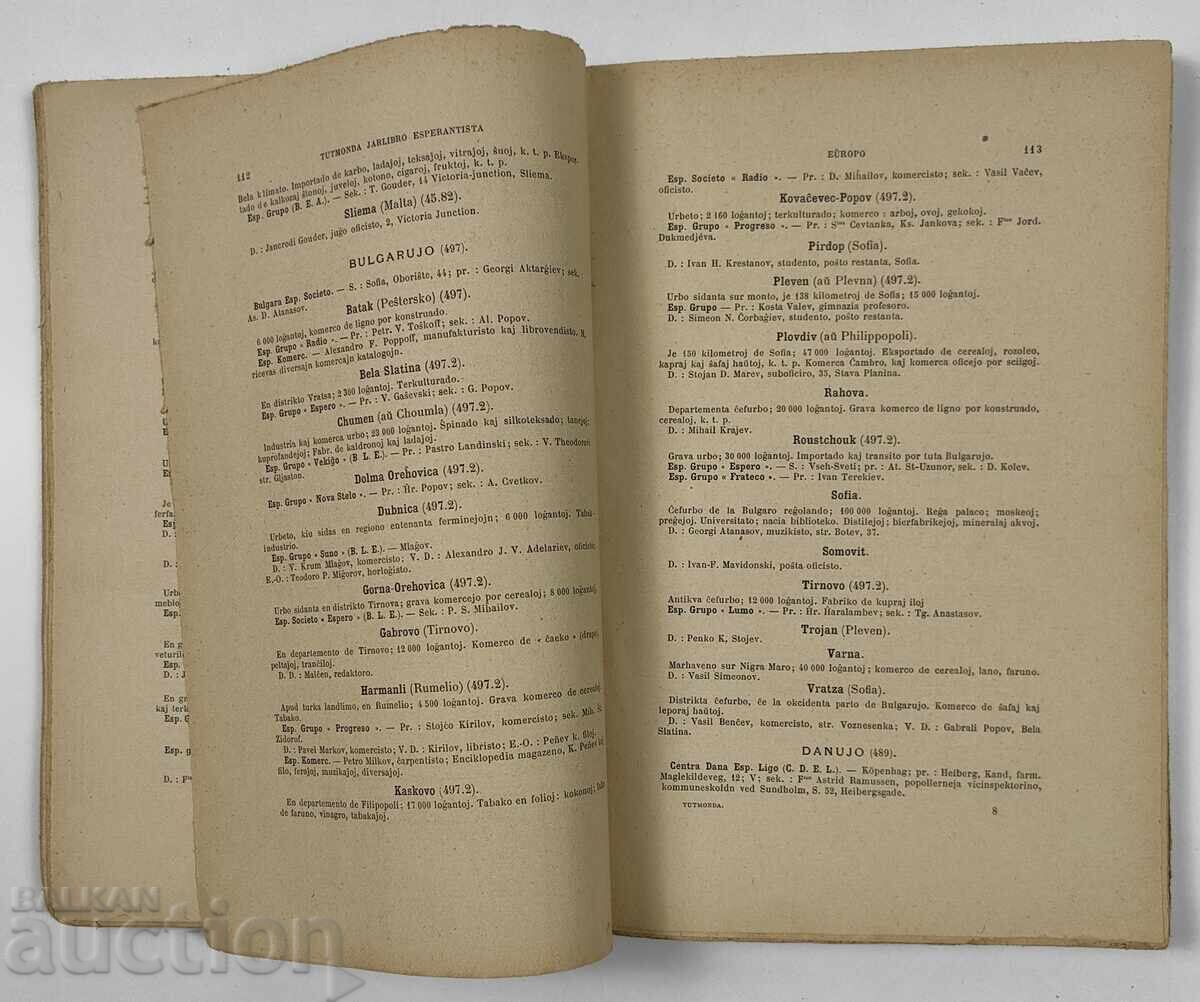 112
TUTMONDA JARLIBRO ESPERANTISTA
Bela klimato. Importado de karbo, ladajoj, teksajoj, vitrajoj, ŝuoj, k. t. p. Ekspor-
tado de kalkoraj ŝtonoj, juveloj, kotono, cigaroj, fruktoj, k. t. p.
Esp. Grupo (B. E. A.). — Sek. : T. Gouder, 14 Victoria-junction, Sliema.
Sliema (Malta) (45.82).
D. : Jancrodi Gouder, juĝo oficisto, 2, Victoria Junction.
BULGARUJO (497).
Bulgara Esp. Societo. — S. : Sofia, Oborište, 44; pr. : Georgi Aktarĝiev; sek.
As. D. Atanasov.
Batak (Peŝtersko) (497).
6 000 loĝantoj, komerco de ligno por konstruado.
Esp. Grupo « Radio ». — Pr. : Petr. V. Toŝkoff; sek. : Al. Popov.
Esp. Komerc. — Alexandro F. Poppoff, manufakturisto kaj librovendisto. N.
ricevas diversajn komercajn katalogojn.
Bela Slatina (497.2).
En distrikto Vratsa; 2 300 loĝantoj. Terkulturado.
Esp. Grupo « Espero ». — Pr. : V. Gaŝevski; sek. : G. Popov.
Chumen (aŭ Choumla) (497.2).
Industria kaj komerca urbo; 23 000 loĝantoj. Ŝpinado kaj silkoteksado; tanejoj;
kuprofandejoj; Fabr. de kaldronoj kaj ladajoj.
Esp. Grupo « Vekiĝo » (B. L. E.). — Pr. : Pastro Landinski; sek. : V. Theodoroff
str. Gljaston.
Dolma Orehovica (497.2).
Esp. Grupo « Nova Stelo ». — Pr. : Ĥr. Popov; sek. : A. Cvetkov.
Dubnica (497.2).
Urbeto, kiu sidas en regiono entenanta ferminejojn; 6 000 loĝantoj. Tabak-
industrio.
Esp. Grupo « Suno » (B. L. E.). — Mlaĝov.
D. : V. Krum Mlaĝov, komercisto; V. D. : Alexandro J. V. Adelariev, oficisto;
E.-O. : Teodoro P. Miĝorov, horloĝisto.
Gorna-Orehovica (497.2).
Urbo sidanta en distrikto Tirnova; grava komercejo por cerealoj; 8 000 loĝantoj.
Esp. Societo « Espero » (B. L. E.). — Sek. : P. S. Mihailov.
Gabrovo (Tirnovo).
En departemento de Tirnovo; 12 000 loĝantoj. Komerco de « ĉaeko » (drapo,
peltajoj, tranĉiloj.
D. D. : Malĉen, redaktoro.
Harmanli (Rumelio) (497.2).
Apud turka landlimo, en Rumelio; 4 500 loĝantoj. Grava komerco de cerealoj
Tabako.
Esp. Grupo « Progreso ». — Pr. : Stojĉo Kirilov, komercisto; sek. Mih. S.
Zidorof.
D. : Pavel Markov, komercisto; V. D. : Kirilov, libristo; E.-O. : Peñev k. filoj.
Esp. Komerc. — Petro Milkov, ĉarpentisto; Enciklopedia magazeno, K. Peñev kaj
filo, ferajoj, muzikajoj, diversajoj.
Kaskovo (497.2).
En departemento de Filipopoli; 17 000 loĝantoj. Tabako en folioj; kokonoj;
de faruno, vinagro, tabakajoj.
EŬROPO
113
Esp. Societo « Radio ». — Pr. : D. Miĥailov, komercisto; sek. : Vasil Vaĉev,
oficisto.
Kovaĉevec-Popov (497.2).
Urbeto; 2 160 loĝantoj; terkulturado; komerco : arboj, ovoj, gekokoj.
Esp. Grupo « Progreso ». — Pr. : Sino Cevtanka, Ks. Jankova; sek. : Fino Jord.
Dukmedjéva.
Pirdop (Sofia).
D. : Ivan H. Krestanov, studento, poŝto restanta, Sofia.
Pleven (aŭ Plevna) (497.2).
Urbo sidanta sur monto, je 138 kilometroj de Sofia; 15 000 loĝantoj.
Esp. Grupo — Pr. : Kosta Valev, gimnazia profesoro.
D. : Simeon N. Ĉorbaĝiev, studento, poŝto restanta.
Plovdiv (aŭ Philippopoli).
Je 150 kilometroj de Sofia; 47 000 loĝantoj. Eksportado de cerealoj, rozoleo,
kapraj kaj ŝafaj haŭtoj, k. t. p. Komerca Ĉambro, kaj komerca oficejo por sciigoj.
D. : Stojan D. Marev, suboficiro, 35, Stava Planina.
Rahova.
Departementa ĉefurbo; 20 000 loĝantoj. Grava komerco de ligno por konstruado,
cerealoj, k. t. p.
D. : Mihail Krajev.
Roustchouk (497.2).
Grava urbo; 30 000 loĝantoj. Importado kaj transito por tuta Bulgarujo.
Esp. Grupo « Espero ». — S. : Vseh-Sveti; pr. : At. St-Uzunor, sek. : D. Kolev.
Esp. Grupo « Frateco ». — Pr. : Ivan Terekiev.
Sofia.
Ĉefurbo de la Bulgaro reĝolando; 100 000 loĝantoj. Reĝa palaco; moskeoj;
preĝejoj. Universitato; nacia biblioteko. Distilejoj; bierfabrikejoj, mineralaj akvoj.
D. : Georgi Atanasov, muzikisto, str. Botev, 37.
Somovit.
D. : Ivan-F. Mavidonski, poŝta oficisto.
Tirnovo (497.2).
Antikva ĉefurbo; 12 000 loĝantoj. Fabriko de kupraj iloj
Esp. Grupo « Lumo ». — Pr. : Ĥr. Haralambev; sek. : Tg. Anastasov.
Trojan (Pleven).
D. : Penko K, Stojev.
Varna.
Marhaveno sur Nigra Maro; 40 000 loĝantoj; komerco de cerealoj, lano, faruno.
D. : Vasil Simeonov.
Vratza (Sofia).
Distrikta ĉefurbo, ĉe la okcidenta parto de Bulgarujo. Komerco de ŝafaj kaj
leporaj haŭtoj.
D. : Vasil Benĉev, komercisto, str. Voznesenka; V. D. : Gabrali Popov, Bela
Slatina.
DANUJO (489).
Centra Dana Esp. Ligo (C. D. E. L.). — Köpenhag; pr. : Heiberg, Kand, farm.
Maglekildeveg, 12; V; sek. : Fino Astrid Ramussen, popollerneja vicinspektorino,
kommuneskoldn ved Sundholm, S. 52, Heibergsgade.
TUTMONDA.
8
BALKAN
auction